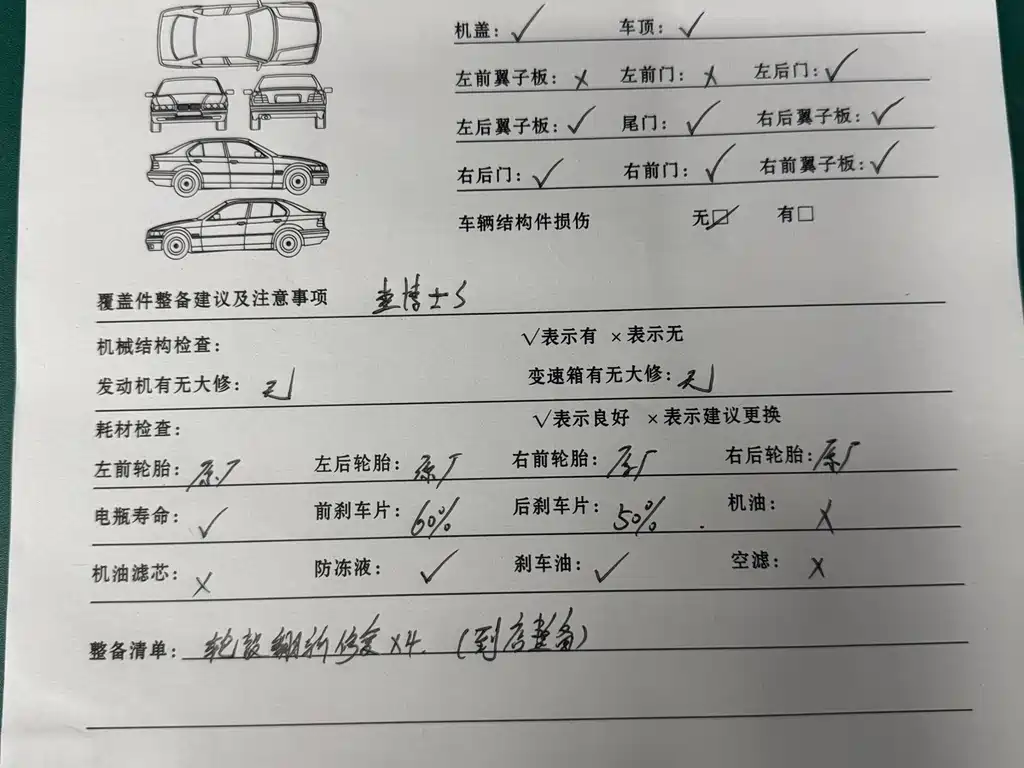 机盖：√ 车顶：√
左前翼子板：× 左前门：× 左后门：√
左后翼子板：√ 尾门：√ 右后翼子板：√
右后门：√ 右前门：√ 右前翼子板：√
车辆结构件损伤 无☑ 有□
覆盖件整备建议及注意事项 查博士S
机械结构检查： √表示有 ×表示无
发动机有无大修：无 变速箱有无大修：无
耗材检查： √表示良好 ×表示建议更换
左前轮胎：原厂 左后轮胎：原厂 右前轮胎：原厂 右后轮胎：原厂
电瓶寿命：√ 前刹车片：60% 后刹车片：50% 机油：×
机油滤芯：× 防冻液：√ 刹车油：√ 空滤：×
整备清单：轮毂翻新修复×4.（到店整备）